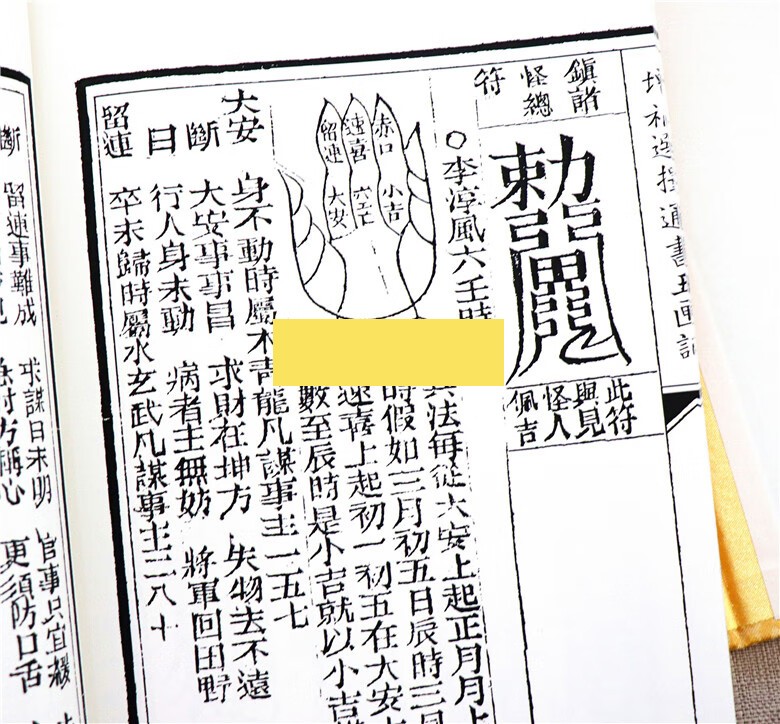 增補選擇通書玉匣記
鎮諸
怪總
符
勅
此符
與見
怪人
佩吉
○李淳風六壬時
法每從大安上起正月月上
時假如三月初五日辰時三月
速喜上起初一初五在大安上
數至辰時是小吉就以小吉
赤口
速喜
留連
小吉
大安
大安 身不動時屬木青龍凡謀事主一五七
斷 大安事事昌 求財在坤方 失物去不遠
曰 行人身未動 病者主無妨 將軍回田野
留連 卒未歸時屬水玄武凡謀事主二八十
斷 留連事難成 求謀日未明 官事只宜緩
方稱心 更須防口舌